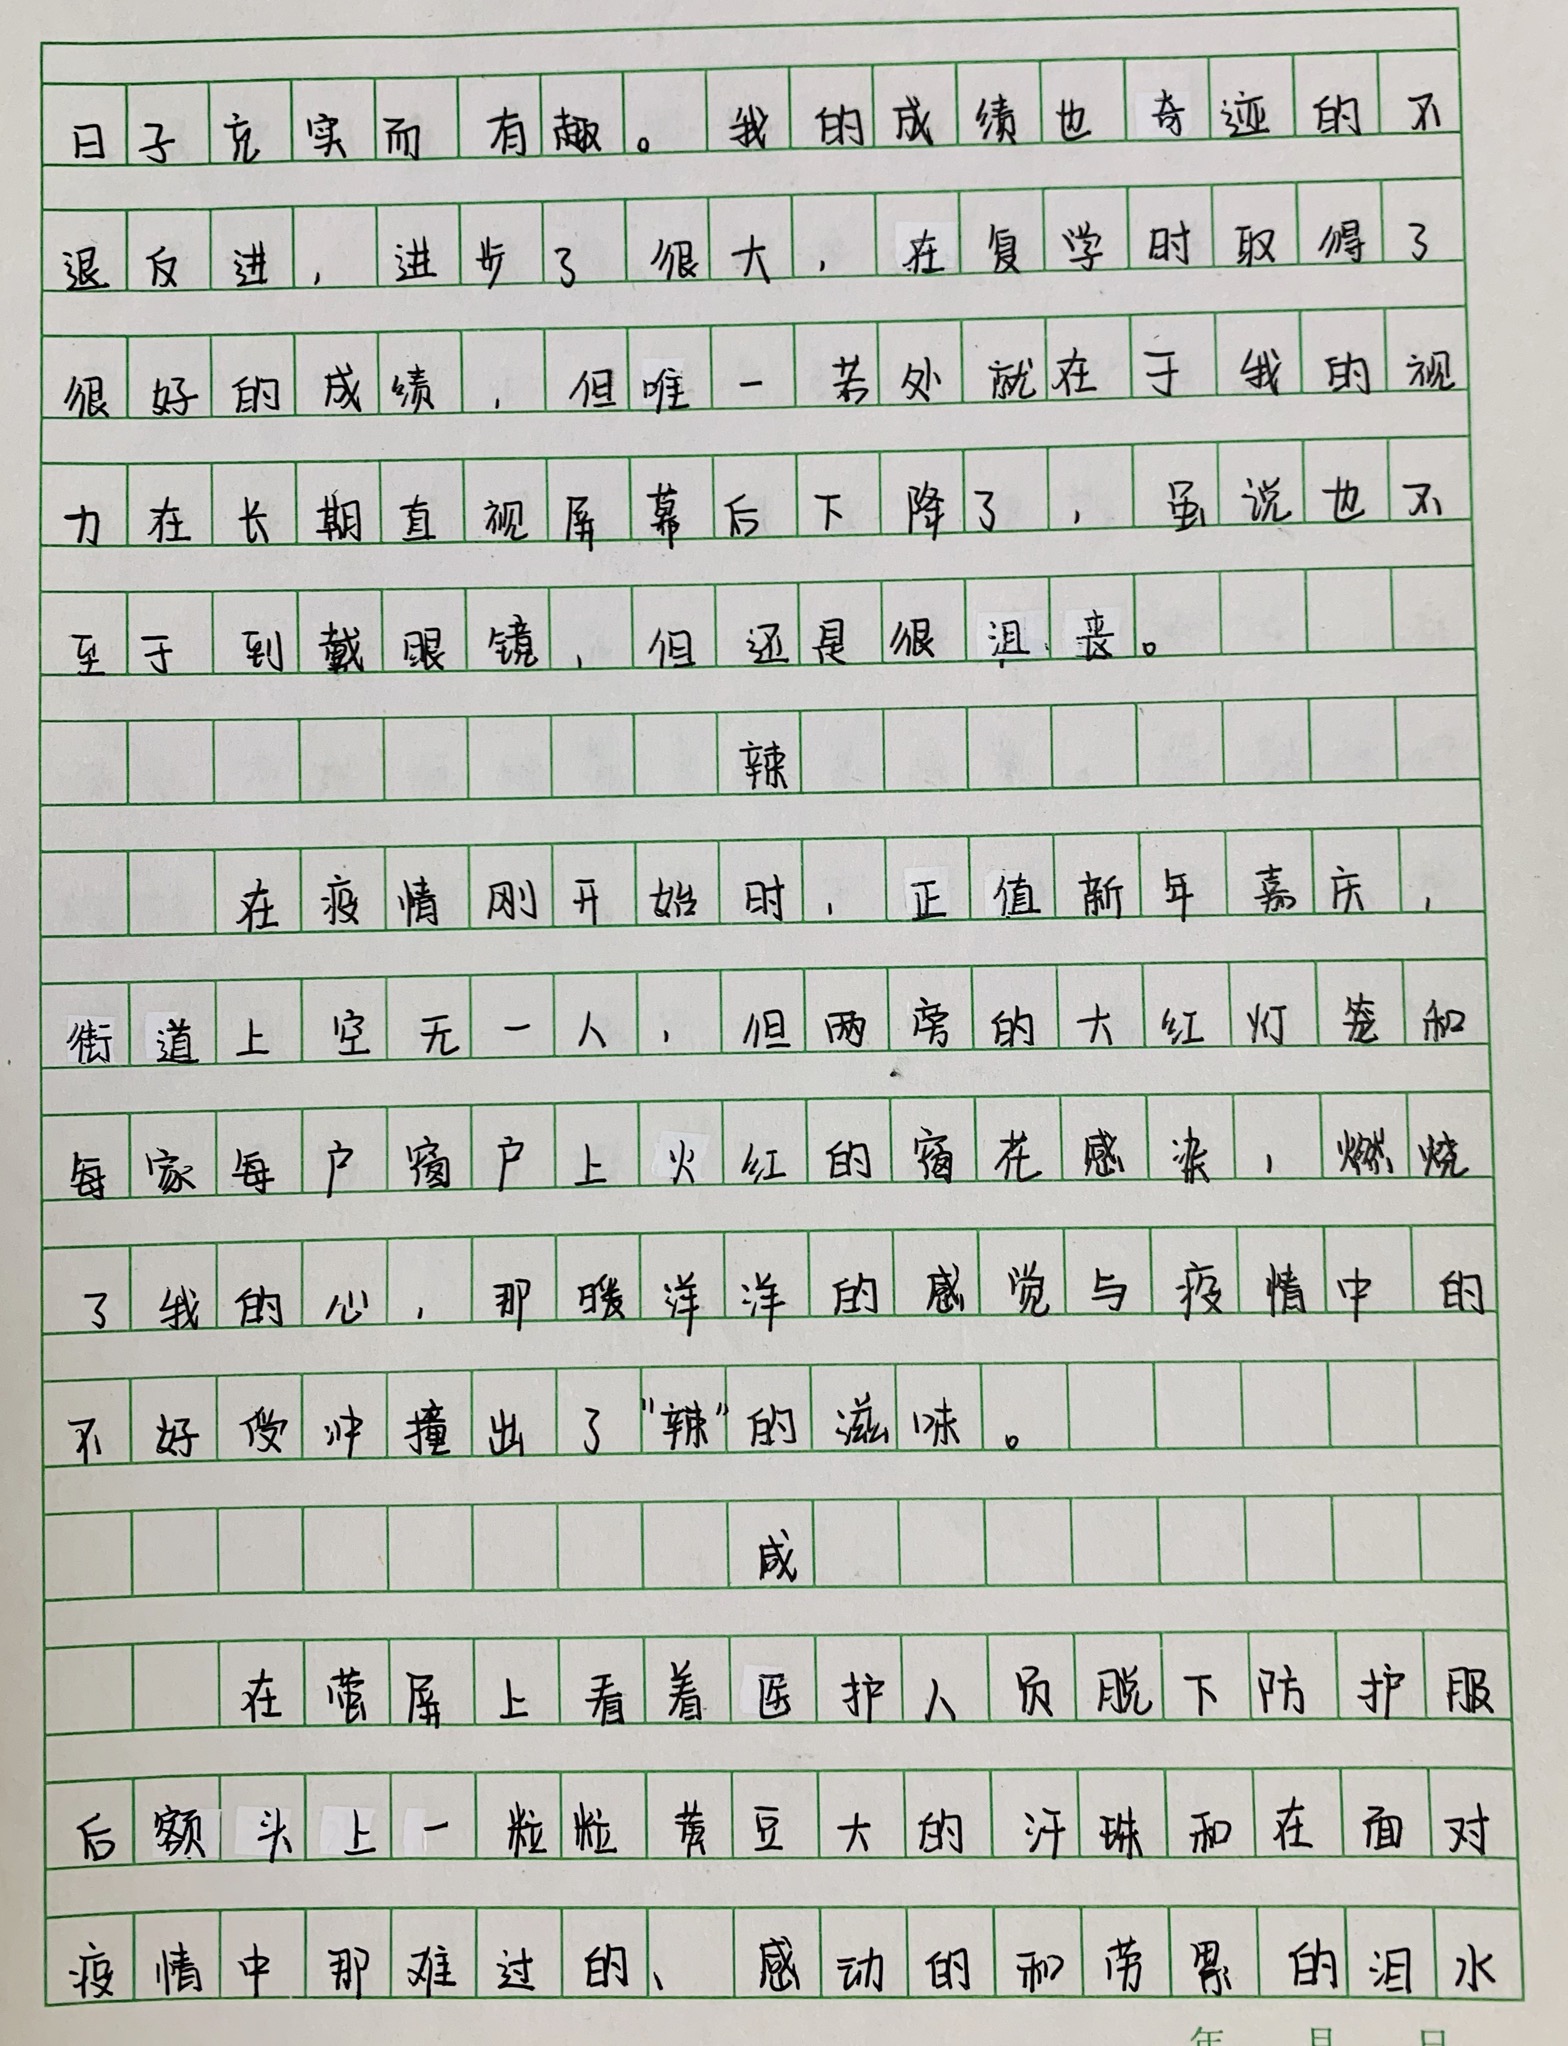 日子充实而有趣。我的成绩也奇迹的不
退反进，进步了很大，在复学时取得了
很好的成绩，但唯一苦处就在于我的视
力在长期直视屏幕后下降了，虽说也不
至于到戴眼镜，但还是很沮丧。
辣
在疫情刚开始时，正值新年嘉庆，
街道上空无一人，但两旁的大红灯笼和
每家每户窗户上火红的窗花感染，燃烧
了我的心，那暖洋洋的感觉与疫情中的
不好受冲撞出了“辣”的滋味。
咸
在萤屏上看着医护人员脱下防护服
后额头上一粒粒黄豆大的汗珠和在面对
疫情中那难过的、感动的和劳累的泪水
年 月 日